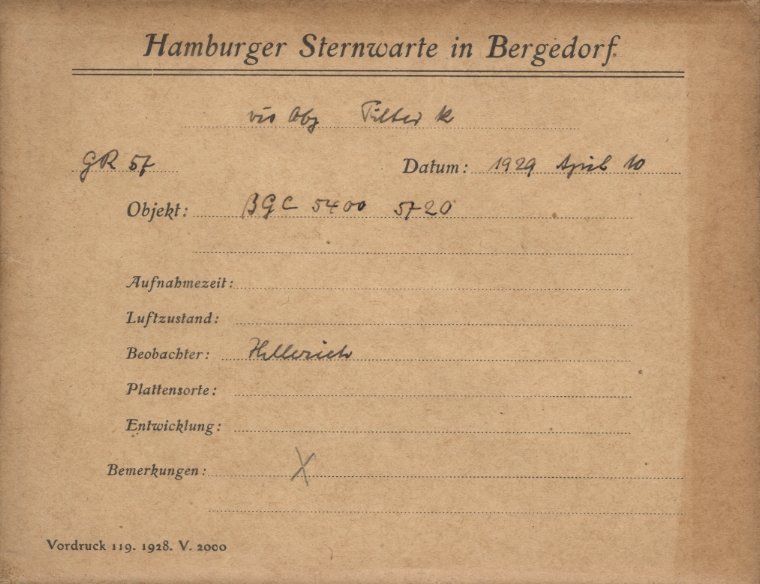 Hamburger Sternwarte in Bergedorf.
vis Obj Filter K
GR 57 Datum: 1929 April 10
Objekt: BGC 5400 5720
Aufnahmezeit:
Luftzustand:
Beobachter: Hellerich
Plattensorte:
Entwicklung:
Bemerkungen: X
Vordruck 119. 1928. V. 2000